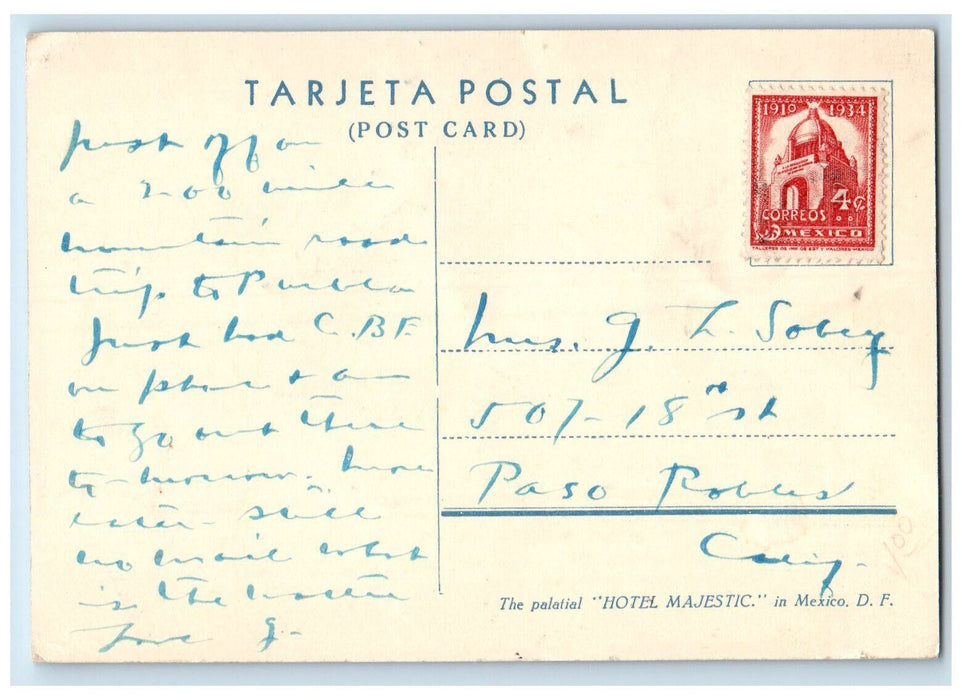 TARJETA POSTAL
(POST CARD)
1910 1934
4¢
CORREOS
MEXICO
TALLERES DE IMP. DE EST. Y VALORES-MEXICO
Just off on
a 200 mile
mountain road
trip to Puebla
Just had C.B.F.
on phone & am
to go out there
to-morrow. More
later - still
no mail what
is the matter
Love G-
Mrs. G. L. Sobey
507 - 18th St
Paso Robles
Calif.
The palatial "HOTEL MAJESTIC." in Mexico. D. F.
100